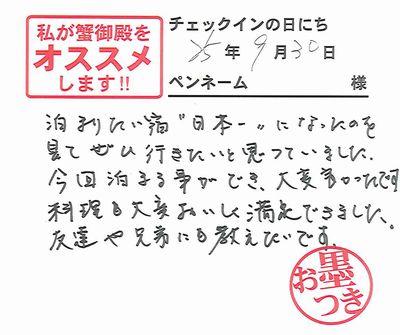 私が蟹御殿を
オススメ
します!!
チェックインの日にち
25年9月30日
ペンネーム 様
泊まりたい宿"日本一"になったのを
見てぜひ行きたいと思っていました.
今回泊まる事ができ、大変多かったです
料理も大変おいしく満足できました。
友達や兄弟にも教えたいです。
お墨つき